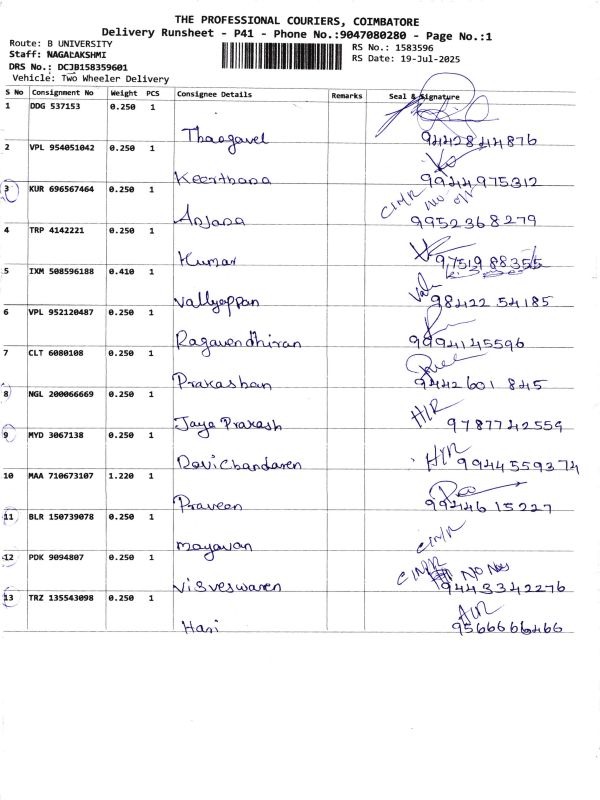 THE PROFESSIONAL COURIERS, COIMBATORE
Delivery Runsheet - P41 - Phone No.:9047080280 - Page No.:1
Route: B UNIVERSITY
Staff: NAGALAKSHMI
DRS No.: DCJB158359601
Vehicle: Two Wheeler Delivery
RS No.: 1583596
RS Date: 19-Jul-2025
S No Consignment No Weight PCS Consignee Details Remarks Seal & Signature
1 DDG 537153 0.250 1
Thangavel 9442844876
2 VPL 954051042 0.250 1
Keerthana 9944975312
3 KUR 696567464 0.250 1
Anjana 9952368279
4 TRP 4142221 0.250 1
Kumar 9751988355
5 IXM 508596188 0.410 1
Valliyappan 98422 54185
6 VPL 952120487 0.250 1
Ragavendhiran 9894145596
7 CLT 6080108 0.250 1
Prakashan 9442601 845
8 NGL 200066669 0.250 1
Jaya Prakash 9787742559
9 MYD 3067138 0.250 1
Ravichandaren 9944559374
10 MAA 710673107 1.220 1
Praveen 9944615227
11 BLR 150739078 0.250 1
mayavan
12 PDK 9094807 0.250 1
Visveswaren 9443342276
13 TRZ 135543098 0.250 1
Hari 9566666466